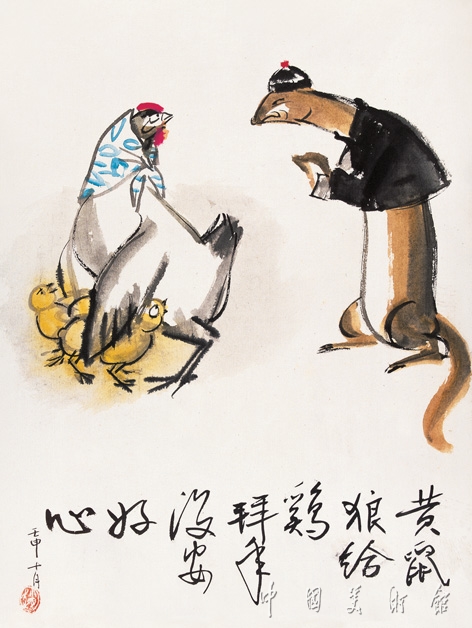 黄鼠
狼给
鸡
拜年
没安
好
心
壬申十月
中国美术馆